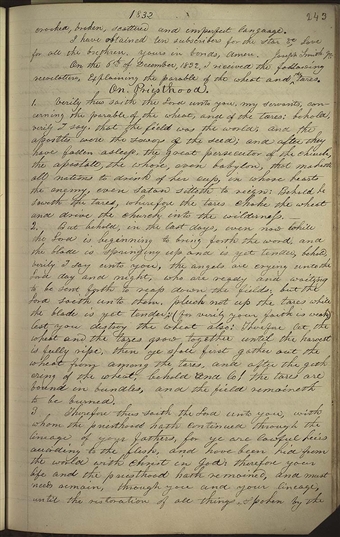 1832
249
crooked, broken, scattered and imperfect language.
I have obtained ten subscribers for the Star &c. Love
for all the brethren, yours in bonds, Amen. Joseph Smith Jr
On the 6th of December, 1832, I received the following
revelation, Explaining the parable of the wheat and Tares.
On Priesthood.
1. Verily thus saith the Lord unto you, my servants, con-
cerning the parable of the wheat, and of the tares: behold,
verily I say, that the field was the world, and the
apostles were the sowers of the seed; and after they
have fallen asleep, the great persecutor of the church,
the apostate, the whore, even babylon, that maketh
all nations to drink of her cup, in whose hearts
the enemy, even Satan sitteth to reign: Behold he
soweth the tares, wherefore the tares choke the wheat
and drive the church into the wilderness.
2. But behold, in the last days, even now while
the Lord is beginning to bring forth the word and
the blade is springing up and is yet tender, behold,
verily I say unto you, the angels are crying unto the
Lord day and night, who are ready and waiting
to be sent forth to reap down the fields; but the
Lord saith unto them, pluck not up the tares while
the blade is yet tender: (for verily your faith is weak)
lest you destroy the wheat also: Therefore let the
wheat and the tares grow together until the harvest
is fully ripe, then ye shall first gather out the
wheat from among the tares, and after the gath-
ering of the wheat, behold and lo! the tares are
bound in bundles, and the field remaineth
to be burned.
3 Therefore thus saith the Lord unto you, with
whom the priesthood hath continued through the
lineage of your fathers, for ye are lawful heirs
according to the flesh, and have been hid from
the world with Christ in God: therefore your
life and the priesthood hath remained, and must
needs remain, through you and your lineage,
until the restoration of all things spoken by the